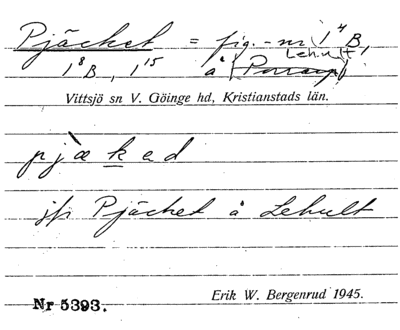 Pjäcket = fig.-nr 1⁴ B,
Lehult
1⁸ B, 1¹⁵ å
Vittsjö sn V. Göinge hd, Kristianstads län.
pjæked
jfr Pjäcket å Lehult
Erik W. Bergenrud 1945.
Nr 5393.